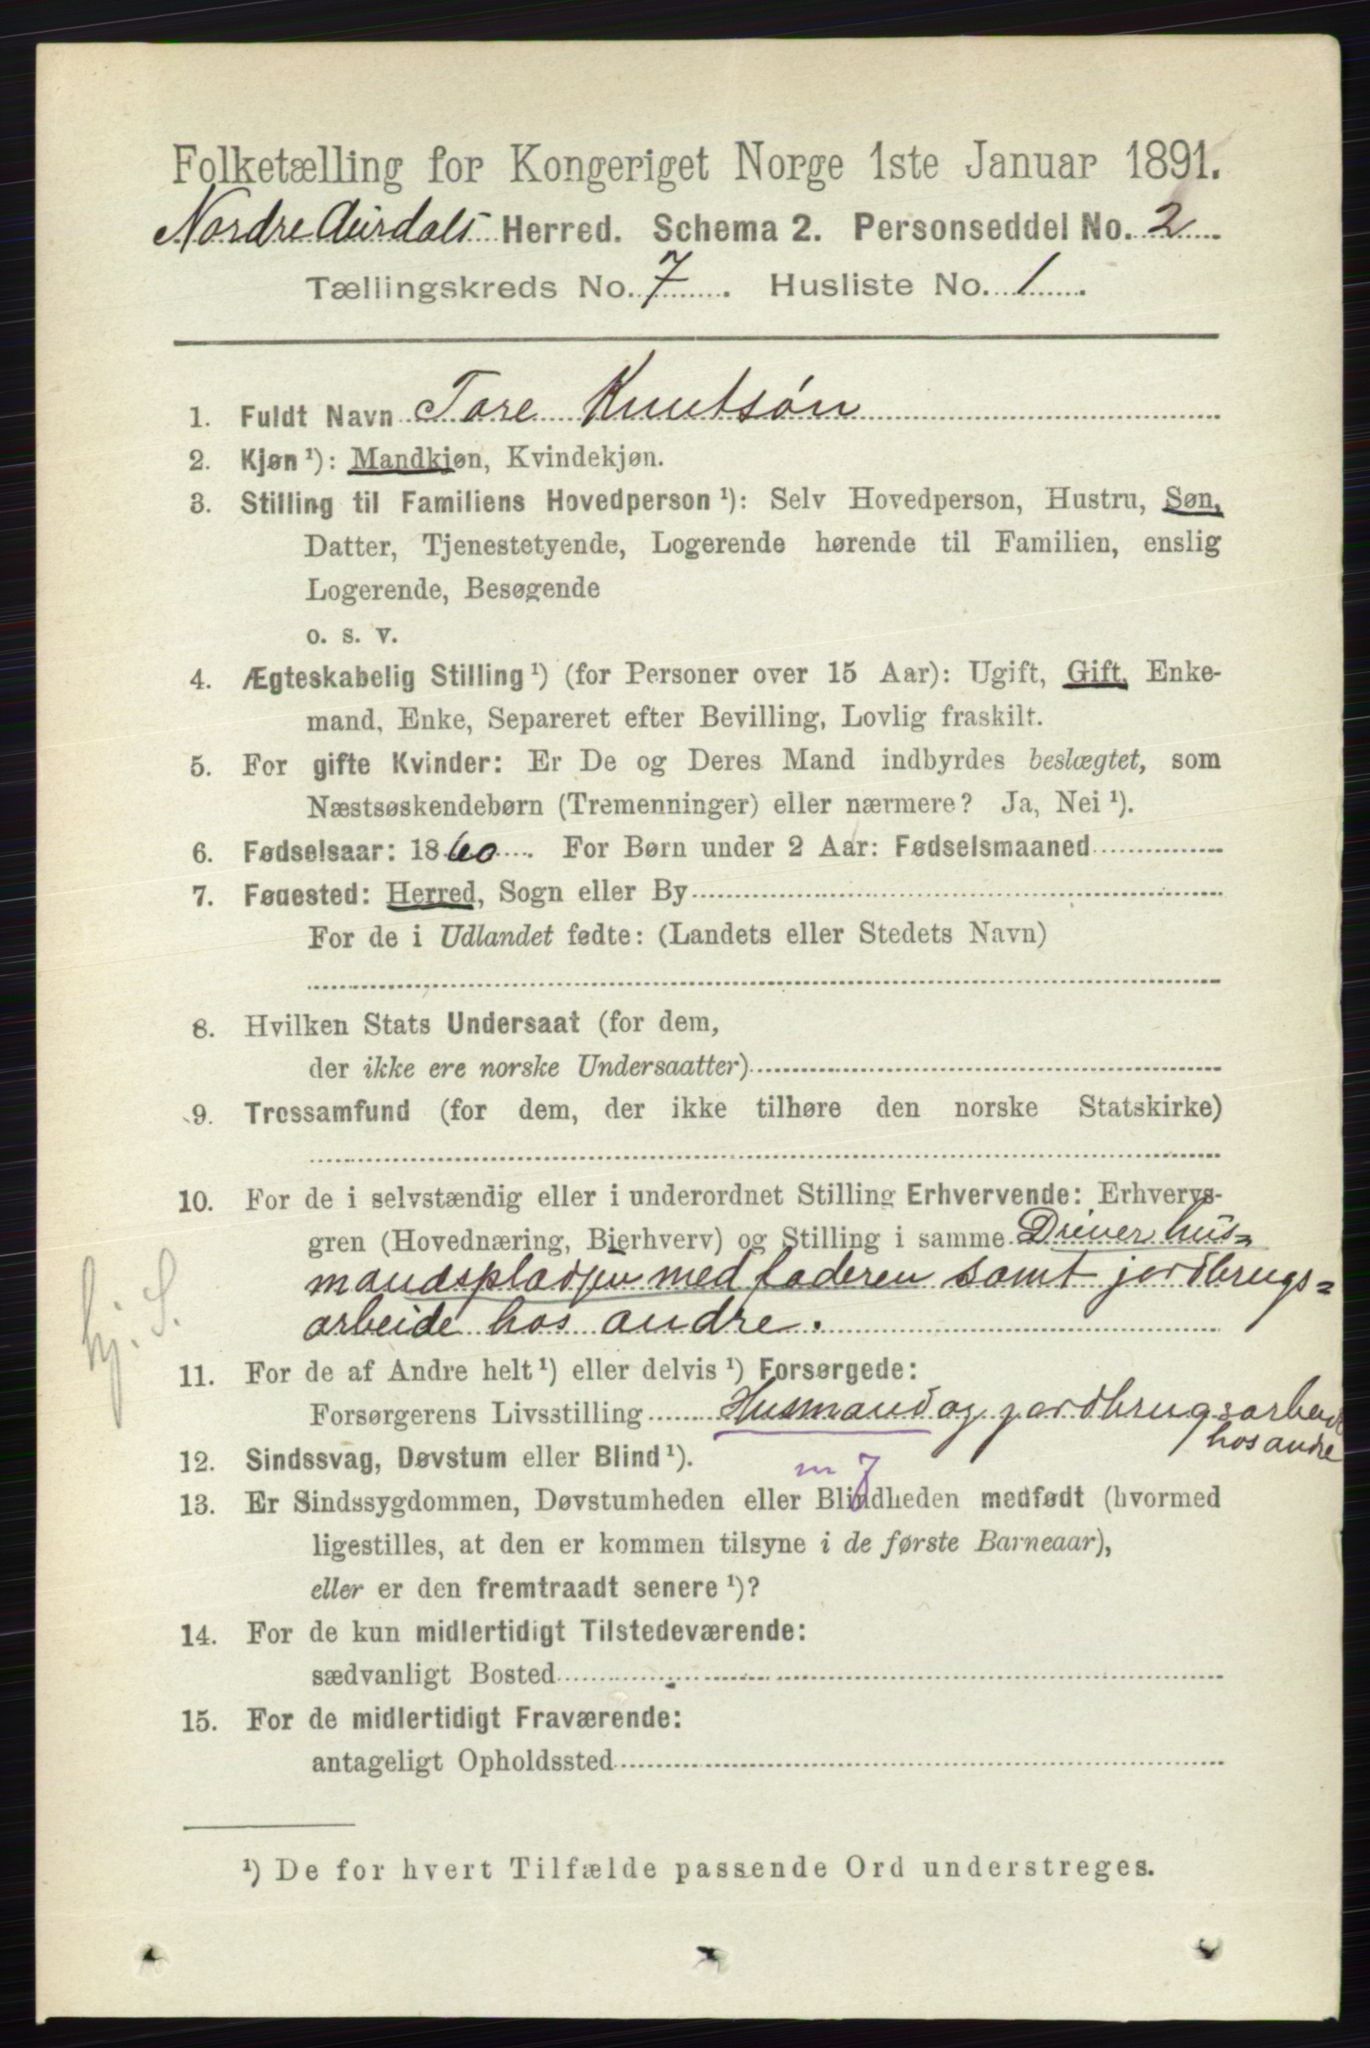 Folketælling for Kongeriget Norge 1ste Januar 1891.
Nordre Aurdals Herred. Schema 2. Personseddel No. 2
Tællingskreds No. 7. Husliste No. 1.
1. Fuldt Navn Tore Knutsøn
2. Kjøn ¹): Mandkjøn, Kvindekjøn.
3. Stilling til Familiens Hovedperson ¹): Selv Hovedperson, Hustru, Søn,
Datter, Tjenestetyende, Logerende hørende til Familien, enslig
Logerende, Besøgende
o. s. v.
4. Ægteskabelig Stilling ¹) (for Personer over 15 Aar): Ugift, Gift, Enke-
mand, Enke, Separeret efter Bevilling, Lovlig fraskilt.
5. For gifte Kvinder: Er De og Deres Mand indbyrdes beslægtet, som
Næstsøskendebørn (Tremenninger) eller nærmere? Ja, Nei ¹).
6. Fødselsaar: 1860. For Børn under 2 Aar: Fødselsmaaned
7. Fødested: Herred, Sogn eller By
For de i Udlandet fødte: (Landets eller Stedets Navn)
8. Hvilken Stats Undersaat (for dem,
der ikke ere norske Undersaatter)
9. Trossamfund (for dem, der ikke tilhøre den norske Statskirke)
10. For de i selvstændig eller i underordnet Stilling Erhvervende: Erhvervs-
gren (Hovednæring, Bierhverv) og Stilling i samme Driver hus=
mandspladsen med faderen samt jordbrugs=
arbeide hos andre.
hj. S.
11. For de af Andre helt ¹) eller delvis ¹) Forsørgede:
Forsørgerens Livsstilling Husmand og jordbrugsarbeide
hos andre
12. Sindssvag, Døvstum eller Blind ¹).
13. Er Sindssygdommen, Døvstumheden eller Blindheden medfødt (hvormed
ligestilles, at den er kommen tilsyne i de første Barneaar),
eller er den fremtraadt senere ¹)?
14. For de kun midlertidigt Tilstedeværende:
sædvanligt Bosted
15. For de midlertidigt Fraværende:
antageligt Opholdssted
¹) De for hvert Tilfælde passende Ord understreges.